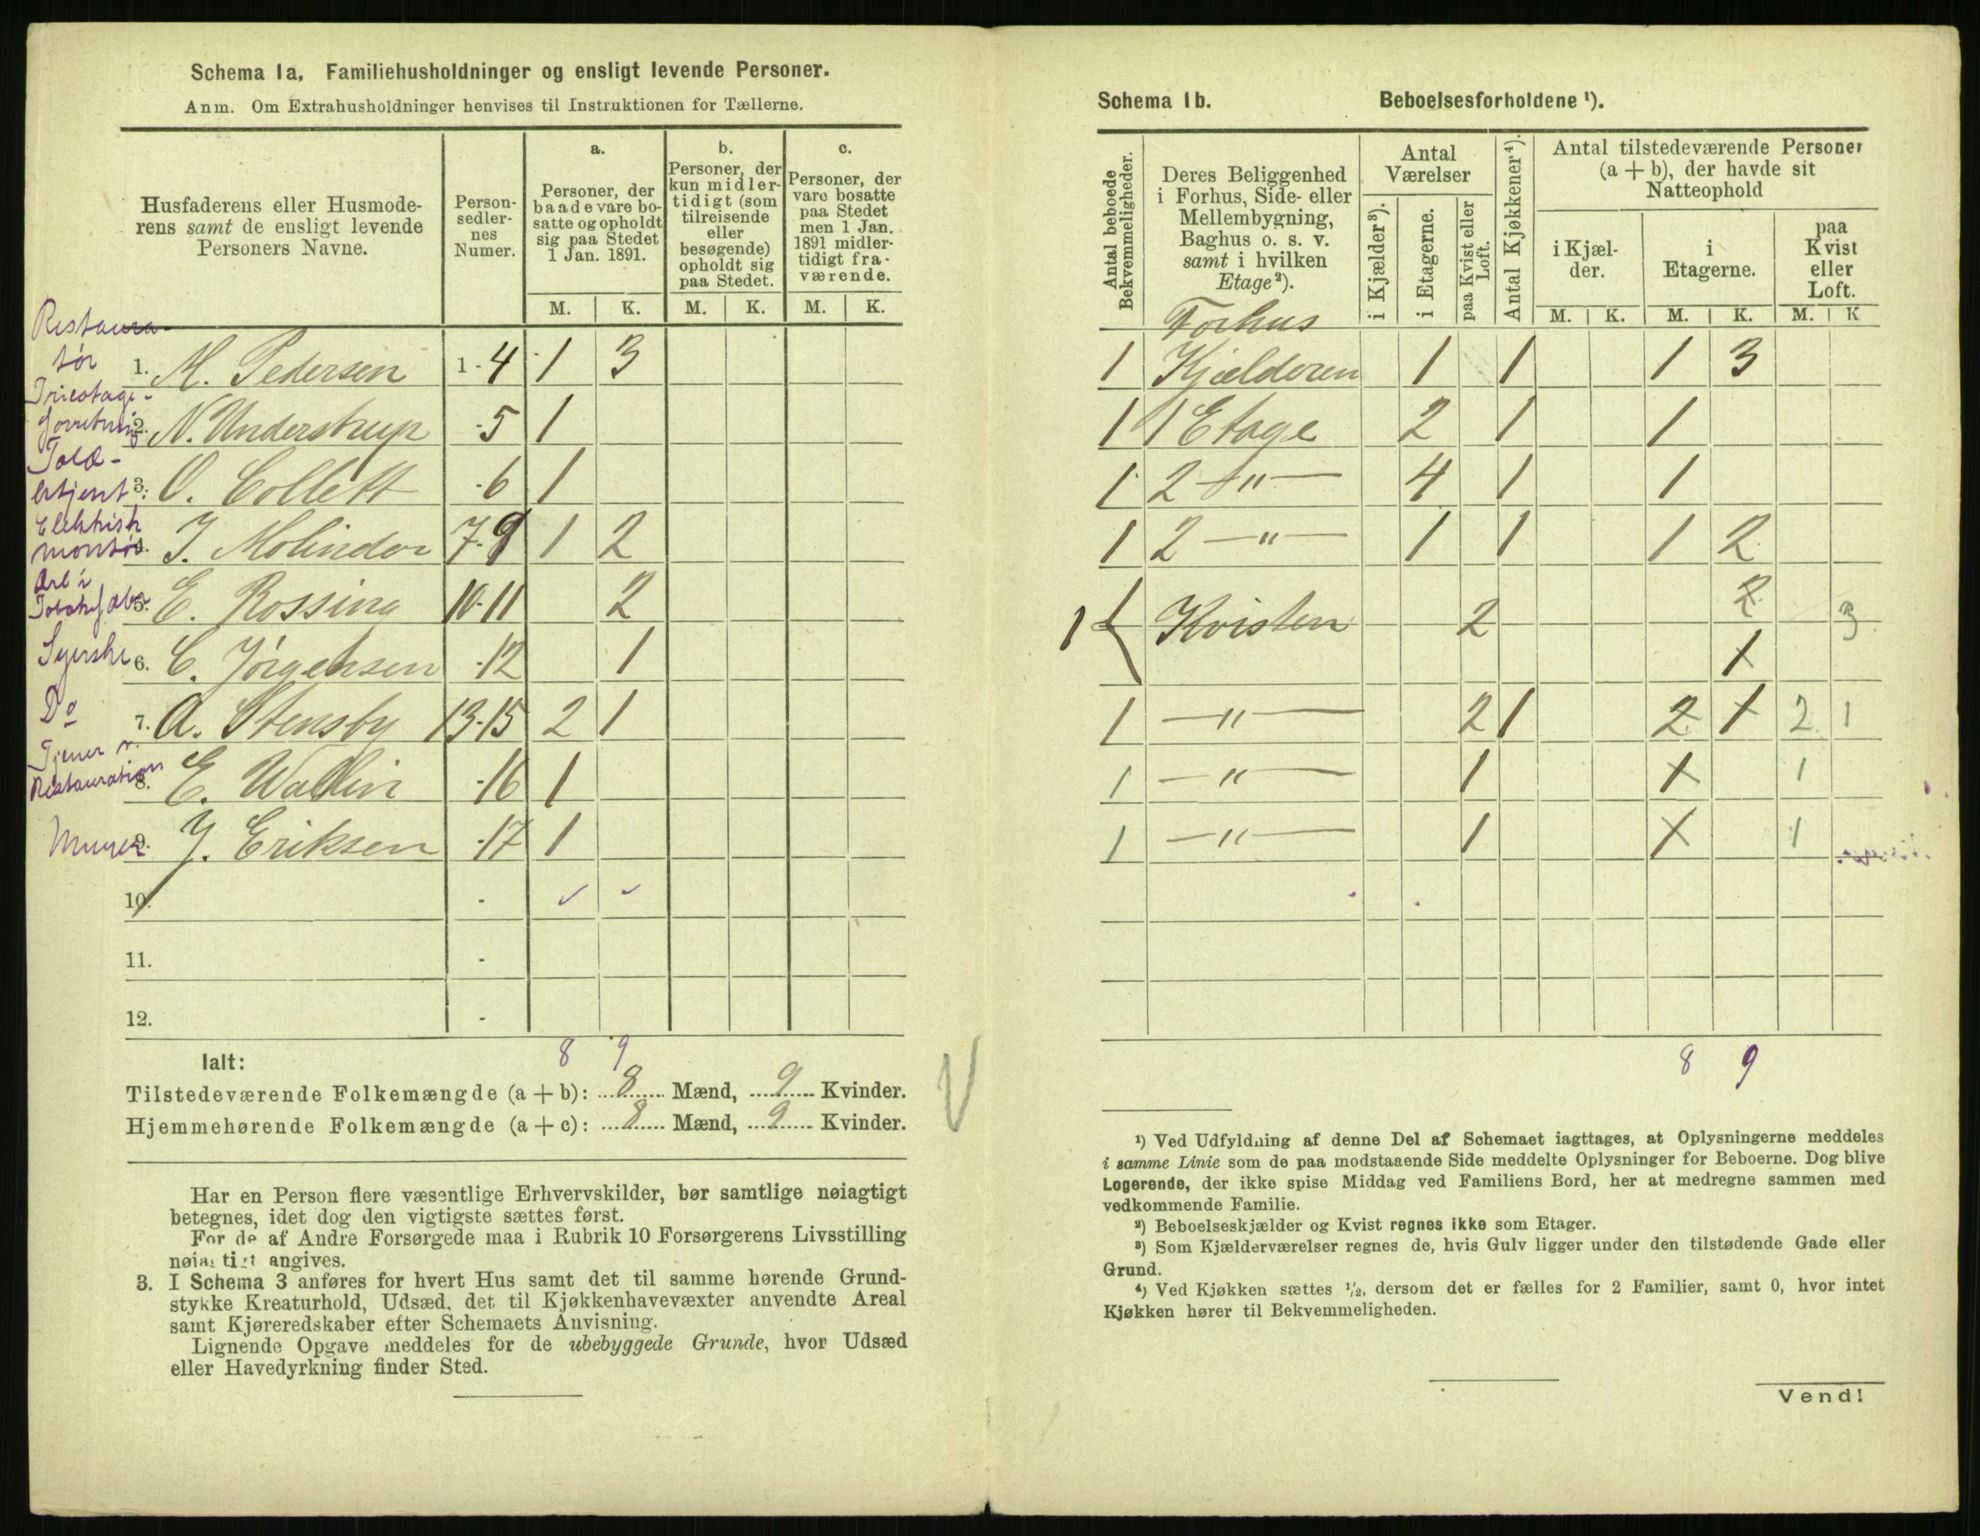 Schema 1a. Familiehusholdninger og ensligt levende Personer.
Anm. Om Extrahusholdninger henvises til Instruktionen for Tællerne.
Husfaderens eller Husmoderens samt de ensligt levende Personers Navne.
Person-sedler-nes Numer.
a. Personer, der baade vare bosatte og opholdt sig paa Stedet 1 Jan. 1891.
b. Personer, der kun midlertidigt (som tilreisende eller besøgende) opholdt sig paa Stedet.
c. Personer, der vare bosatte paa Stedet men 1 Jan. 1891 midlertidigt fraværende.
M. K. M. K. M. K.
Restaura-
tør 1. M. Pedersen 1-4 1 3
Tricotage-
forretning 2. N. Understrup -5 1
Told-
betjent 3. O. Collett -6 1
Elektrisk
montør 4. J. Molinder 7-9 1 2
Arb i
Tobaksfabr 5. E. Rossing 10-11 2
Syerske 6. C. Jørgensen -12 1
Do 7. A. Stensby 13-15 2 1
Tjener v.
Restauration 8. E. Wallin -16 1
Murer 9. J. Eriksen -17 1
10. -
11. -
12. -
Ialt: 8 9
Tilstedeværende Folkemængde (a + b): 8 Mænd, 9 Kvinder.
Hjemmehørende Folkemængde (a + c): 8 Mænd, 9 Kvinder.
Har en Person flere væsentlige Erhvervskilder, bør samtlige nøiagtigt
betegnes, idet dog den vigtigste sættes først.
For de af Andre Forsørgede maa i Rubrik 10 Forsørgerens Livsstilling
nøiagtigt angives.
3. I Schema 3 anføres for hvert Hus samt det til samme hørende Grund-
stykke Kreaturhold, Udsæd, det til Kjøkkenhavevæxter anvendte Areal
samt Kjøreredskaber efter Schemaets Anvisning.
Lignende Opgave meddeles for de ubebyggede Grunde, hvor Udsæd
eller Havedyrkning finder Sted.
Schema 1b. Beboelsesforholdene ¹).
Antal beboede Bekvemmeligheder.
Deres Beliggenhed i Forhus, Side- eller Mellembygning, Baghus o. s. v. samt i hvilken Etage²).
Antal Værelser
i Kjælder³).
i Etagerne.
paa Kvist eller Loft.
Antal Kjøkkener⁴).
Antal tilstedeværende Personer (a + b), der havde sit Natteophold
i Kjælder.
i Etagerne.
paa Kvist eller Loft.
M. K. M. K. M. K
Forhus
1 Kjælderen 1 1 1 3
1 1 Etage 2 1 1
1 2 — " — 4 1 1
1 2 — " — 1 1 1 2
1 { Kvisten 2 2 3
1
1 — " — 2 1 2 1 2 1
1 — " — 1 1 1
1 — " — 1 1 1
8 9
¹) Ved Udfyldning af denne Del af Schemaet iagttages, at Oplysningerne meddeles
i samme Linie som de paa modstaaende Side meddelte Oplysninger for Beboerne. Dog blive
Logerende, der ikke spise Middag ved Familiens Bord, her at medregne sammen med
vedkommende Familie.
²) Beboelseskjælder og Kvist regnes ikke som Etager.
³) Som Kjælderværelser regnes de, hvis Gulv ligger under den tilstødende Gade eller
Grund.
⁴) Ved Kjøkken sættes ½, dersom det er fælles for 2 Familier, samt 0, hvor intet
Kjøkken hører til Bekvemmeligheden.
Vend!